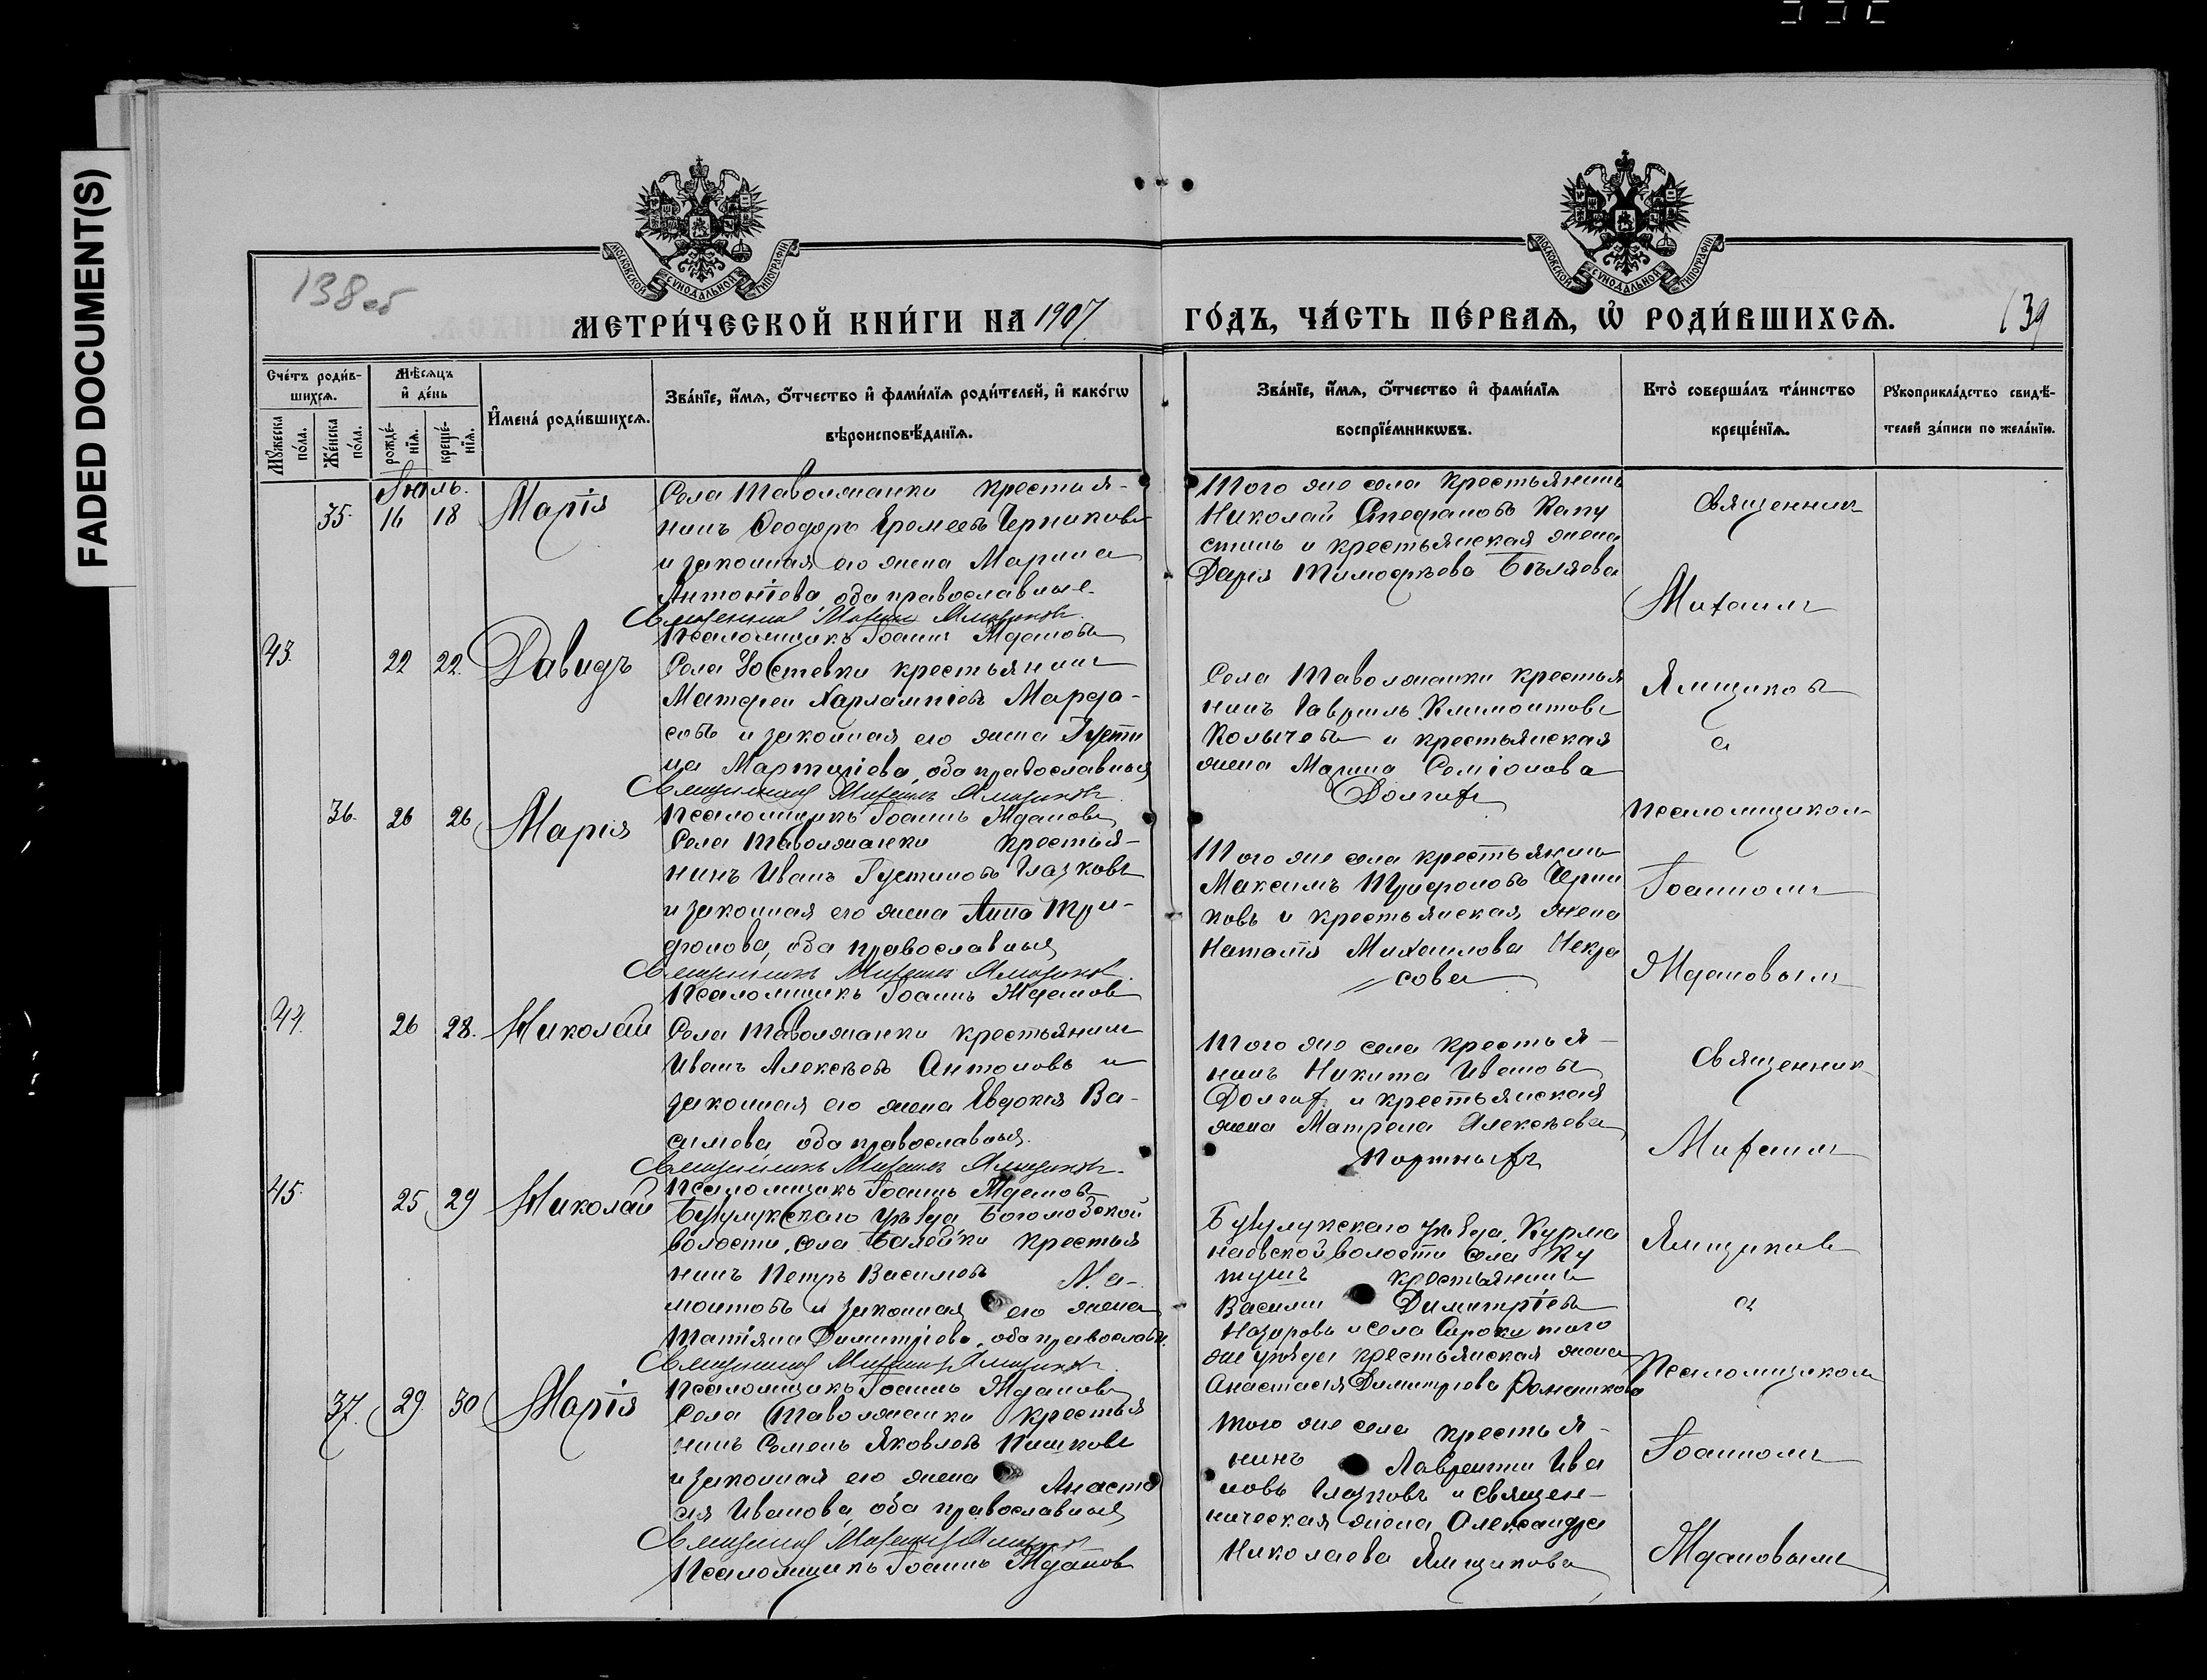 FADED DOCUMENT(S)
138 об
139
МОСКОВСКОЙ СѴНОДАЛЬНОЙ ТИПОГРАФІИ
МОСКОВСКОЙ СѴНОДАЛЬНОЙ ТИПОГРАФІИ
МЕТРИ́ЧЕСКОЙ КНИ́ГИ НА 1907
ГО́ДЪ, ЧА́СТЬ ПЕ́РВАѦ, Ѽ РОДИ́ВШИХСѦ.
Сче́тъ роди́в-
шихсѧ.
Мꙋ́жеска
по́ла.
Же́нска
по́ла.
Мѣ́сѧцъ
и҆ де́нь
рожде́-
нїѧ.
креще́-
нїѧ.
И҆мена́ роди́вшихсѧ.
Зва́нїе, и҆́мѧ, ѻ҆́тчество и҆ фами́лїѧ роди́телей, и҆ како́гѡ
вѣроисповѣ́данїѧ.
Зва́нїе, и҆́мѧ, ѻ҆́тчество и҆ фами́лїѧ
воспрїе́мникѡвъ.
Кто̀ соверша́лъ та́инство
креще́нїѧ.
Рꙋкоприкла́дство свидѣ́-
телей за́писи по жела́нїю.
Іюль.
35. 16 18 Марія
Села Таволжанки крестья-
нинъ Ѳеодоръ Еремеевъ Черниковъ
и законная его жена Марина
Антоніева оба православные.
Священникъ Михаилъ Ямщиковъ.
Псаломщикъ Іоаннъ Ждановъ
Того же села крестьянинъ
Николай Стефановъ Капу
стинъ и крестьянская жена
Дарія Тимоѳѣева Бѣляева
Священник
Михаилъ
43. 22 22. Давидъ
Села крестьянинъ
Матѳеи Харлампіевъ
и законная его жена Іусти
на Мартиніева, оба православныя
Священникъ Михаилъ Ямщиковъ.
Псаломщикъ Іоаннъ Ждановъ
Села Таволжанки крестья
нинъ Гавриилъ Климонтовъ
Колычевъ и крестьянская
жена Марина Симіонова
Долгихъ
Ямщиковъ
а
псаломщиком
36. 26 26 Марія
Села Таволжанки крестья-
нинъ Иванъ Іустиновъ Глазковъ
и законная его жена Анна Три-
фонова, оба православныя
Священникъ Михаилъ Ямщиковъ.
Псаломщикъ Іоаннъ Ждановъ
Того же села крестьянинъ
Максимъ Трифоновъ Черни
ковъ и крестьянская жена
Наталія Михаилова Некра
сова
Іоанномъ
Ждановымъ
44. 26 28. Николай
Села Таволжанки крестьянинъ
Иванъ Алексѣевъ Антоновъ и
законная его жена Евдокія Ва-
силіева оба православныя.
Священникъ Михаилъ Ямщиковъ.
Псаломщикъ Іоаннъ Ждановъ
Того же села крестья-
нинъ Никита Ивановъ
Долгих и крестьянская
жена Матрена Алексѣева
Портныхъ
Священник
Михаилъ
45. 25 29 Николай
Бузулукскаго уѣзда
волости, села крестья
нинъ Петръ Василіевъ
и законная его жена
Татіяна Димитріева, оба православн.
Священникъ Михаилъ Ямщиковъ.
Псаломщикъ Іоаннъ Ждановъ
Бузулукскаго уѣзда, Курма
наевской волости села
крестьянинъ
Василій Димитріевъ
Назаровъ и села того
же уѣзда крестьянская жена
Анастасія Димитріева Романкова
Ямщиковъ
а
псаломщиком
37. 29 30 Марія
Села Таволжанки крестья
нинъ Семенъ Яковлевъ
и законная его жена Анаста
сія Иванова, оба православныя
Священникъ Михаилъ Ямщиковъ
Псаломщикъ Іоаннъ Ждановъ
Того же села крестья-
нинъ Лаврентій Ива
новъ Глазковъ и священ-
ническая жена Александра
Николаева Ямщикова
Іоанномъ
Ждановымъ